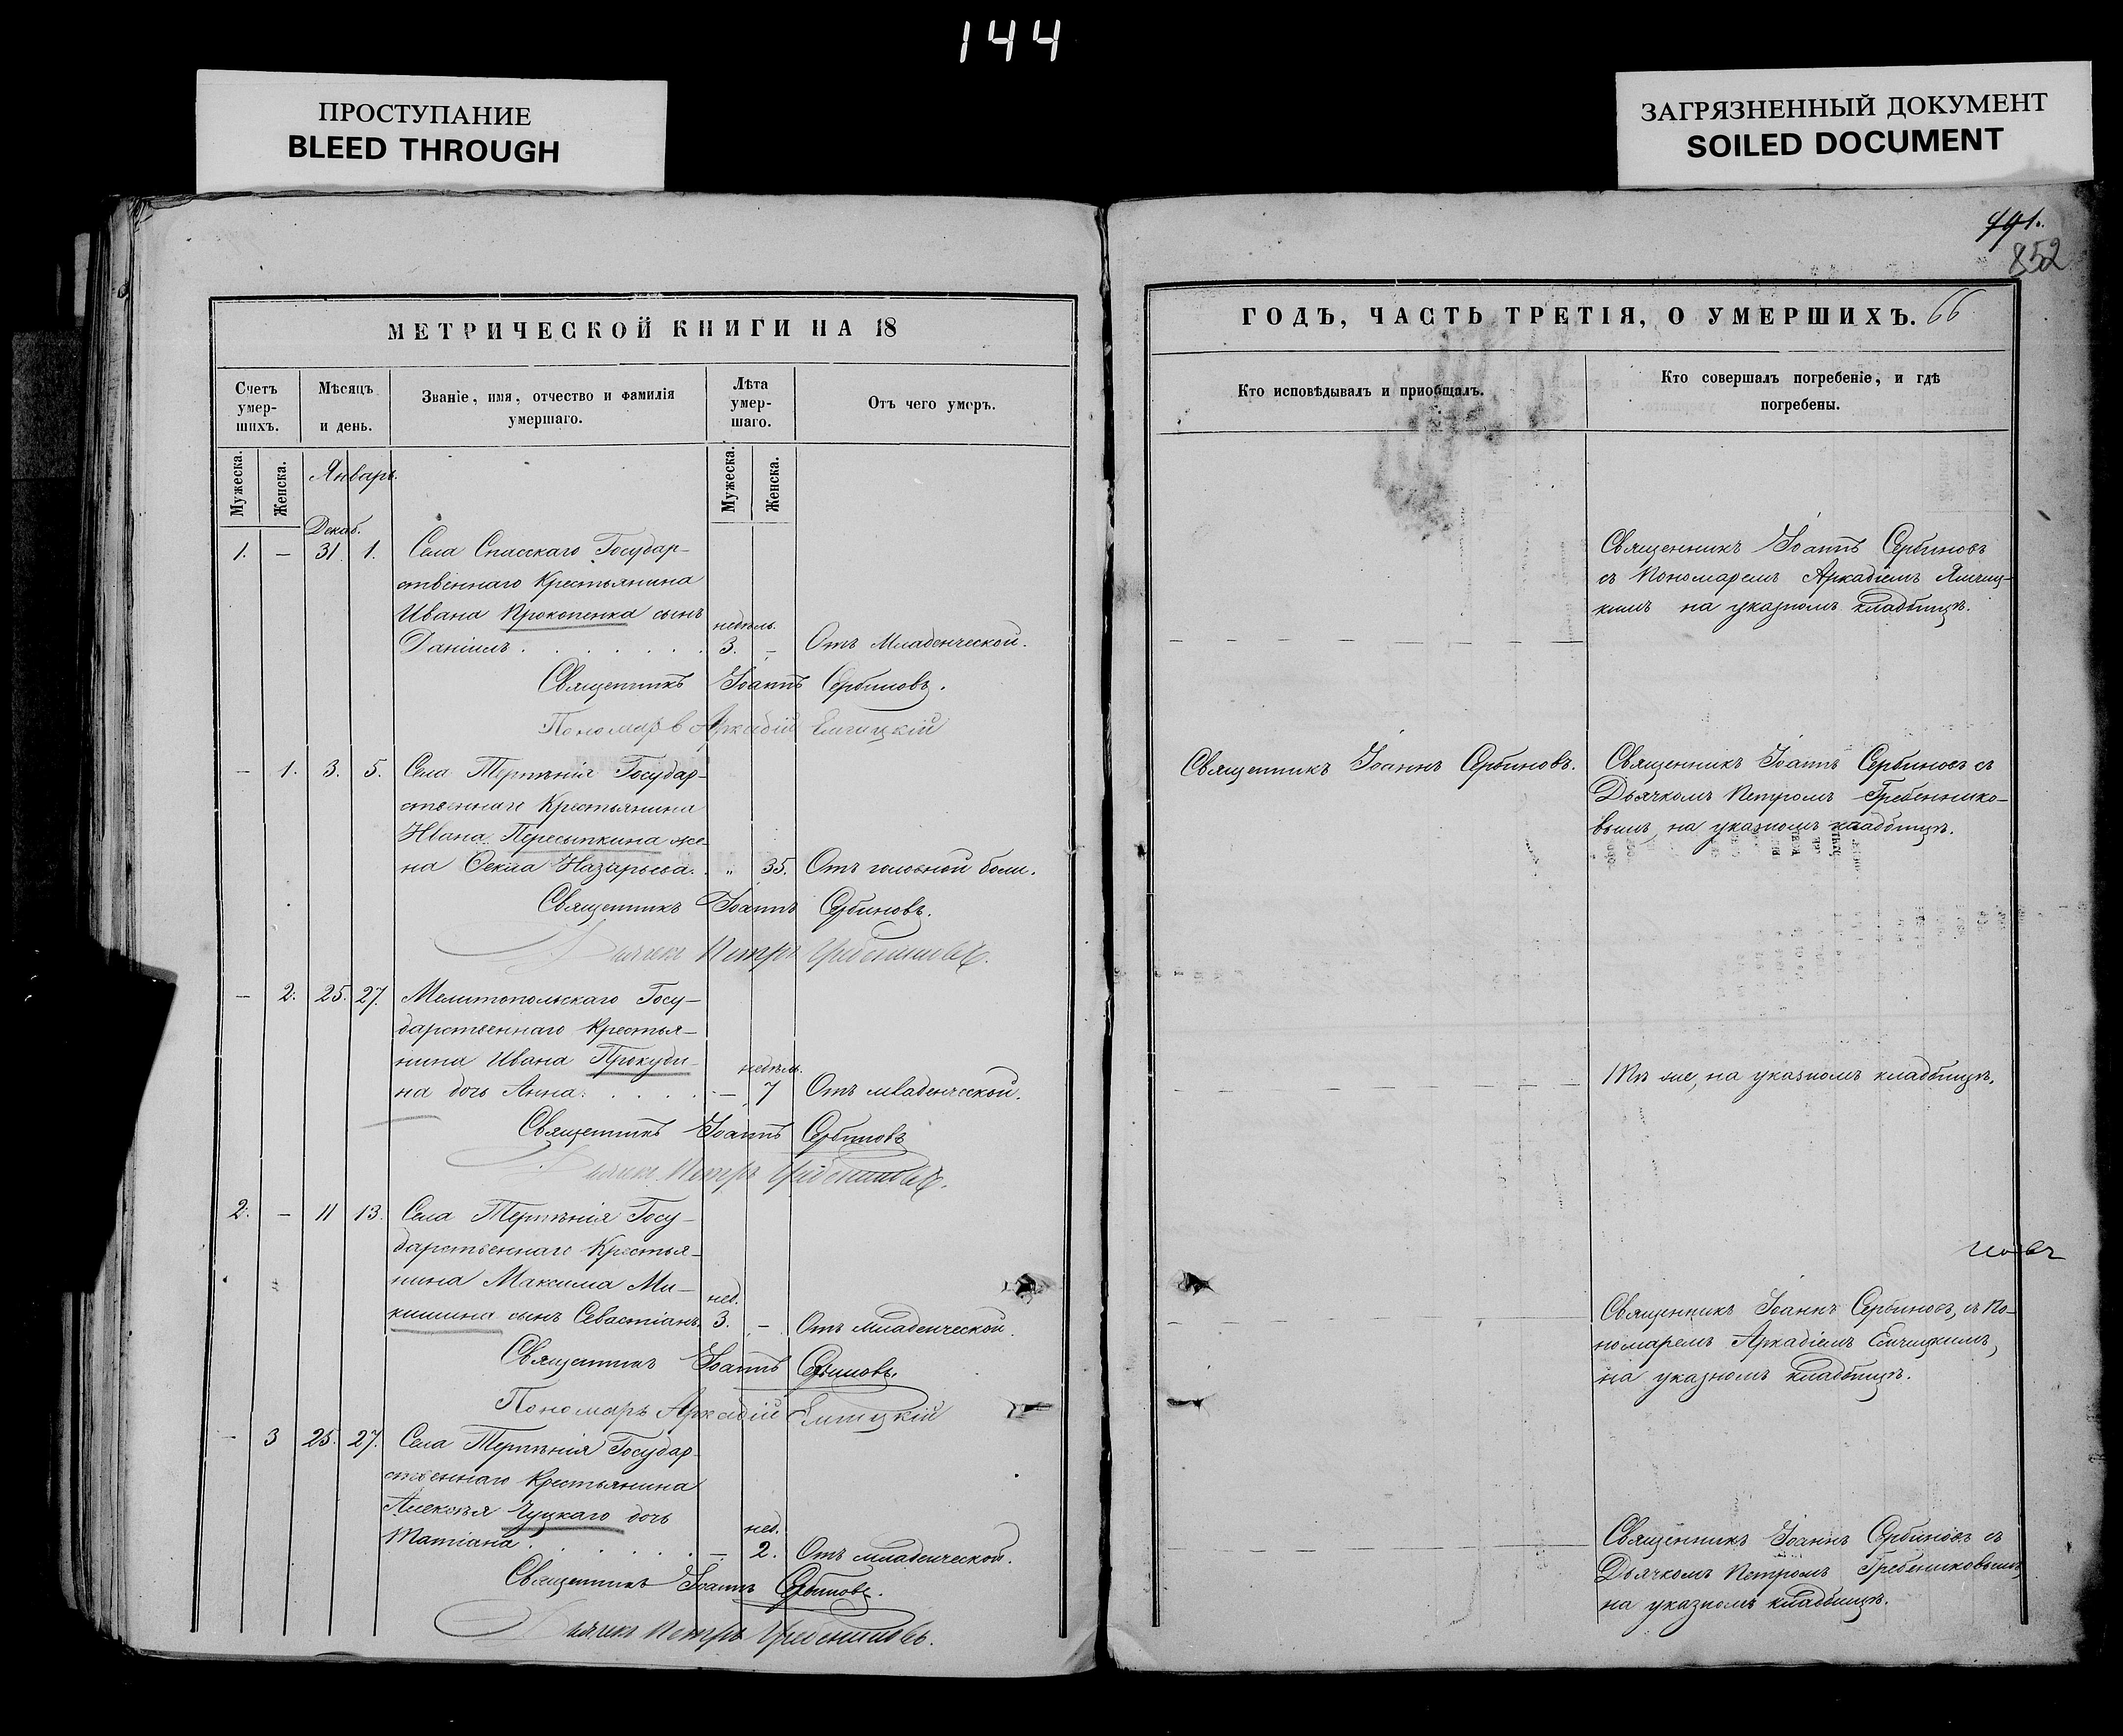 144
ПРОСТУПАНИЕ
BLEED THROUGH
ЗАГРЯЗНЕННЫЙ ДОКУМЕНТ
SOILED DOCUMENT
852
МЕТРИЧЕСКОЙ КНИГИ НА 18
Счетъ умер-шихъ.
Мѣсяцъ и день.
Званіе, имя, отчество и фамилія умершаго.
Лѣта умер-шаго.
Отъ чего умеръ.
Мужеска.
Женска.
Январь.
Мужеска.
Женска.
Декаб.
1. — 31. 1. Села Спасскаго Государ-
ственнаго Крестьянина
Ивана Прокопенка сынъ
недѣль.
Даніилъ . . . . . . . 3. — Отъ Младенческой.
Священникъ Іоаннъ Сербиновъ.
Пономарь Аркадій
— 1. 3. 5. Села Терпѣнія Государ-
ственнаго Крестьянина
Ивана Пересыпкина же-
на Ѳекла Назарьева. „ 35. Отъ головной боли.
Священникъ Іоаннъ Сербиновъ.
Дьячекъ Петръ Гребенниковъ.
— 2. 25. 27. Мелитопольскаго Госу-
дарственнаго Крестья-
нина Ивана Прокуди-
недѣль.
на дочь Анна. . . . . — 7 Отъ младенческой.
Священникъ Іоаннъ Сербиновъ
Дьячекъ Петръ Гребенниковъ.
2. — 11 13. Села Терпѣнія Госу-
дарственнаго Крестья-
нина Максима Ми-
нед.
кишина сынъ Севастіанъ. 3. — Отъ младенческой.
Священникъ Іоаннъ Сербиновъ.
Пономарь Аркадій
— 3 25. 27. Села Терпѣнія Государ-
ственнаго Крестьянина
Алексѣя Чуцкаго дочь
нед.
Татіана . . . . . . — 2. Отъ младенческой.
Священникъ Іоаннъ Сербиновъ.
Дьячекъ Петръ Гребенниковъ.
ГОДЪ, ЧАСТЬ ТРЕТІЯ, О УМЕРШИХЪ. 66
Кто исповѣдывалъ и пріобщалъ.
Кто совершалъ погребеніе, и гдѣ
погребены.
Священникъ Іоаннъ Сербиновъ
съ Пономаремъ Аркадіемъ
на указномъ кладбищѣ.
Священникъ Іоаннъ Сербиновъ.
Священникъ Іоаннъ Сербиновъ съ
Дьячкомъ Петромъ Гребеннико-
вымъ, на указномъ кладбищѣ.
Тѣ же, на указномъ кладбищѣ.
Священникъ Іоаннъ Сербиновъ, съ По-
номаремъ Аркадіемъ
на указномъ кладбищѣ.
Священникъ Іоаннъ Сербиновъ съ
Дьячкомъ Петромъ Гребениковымъ,
на указномъ кладбищѣ.